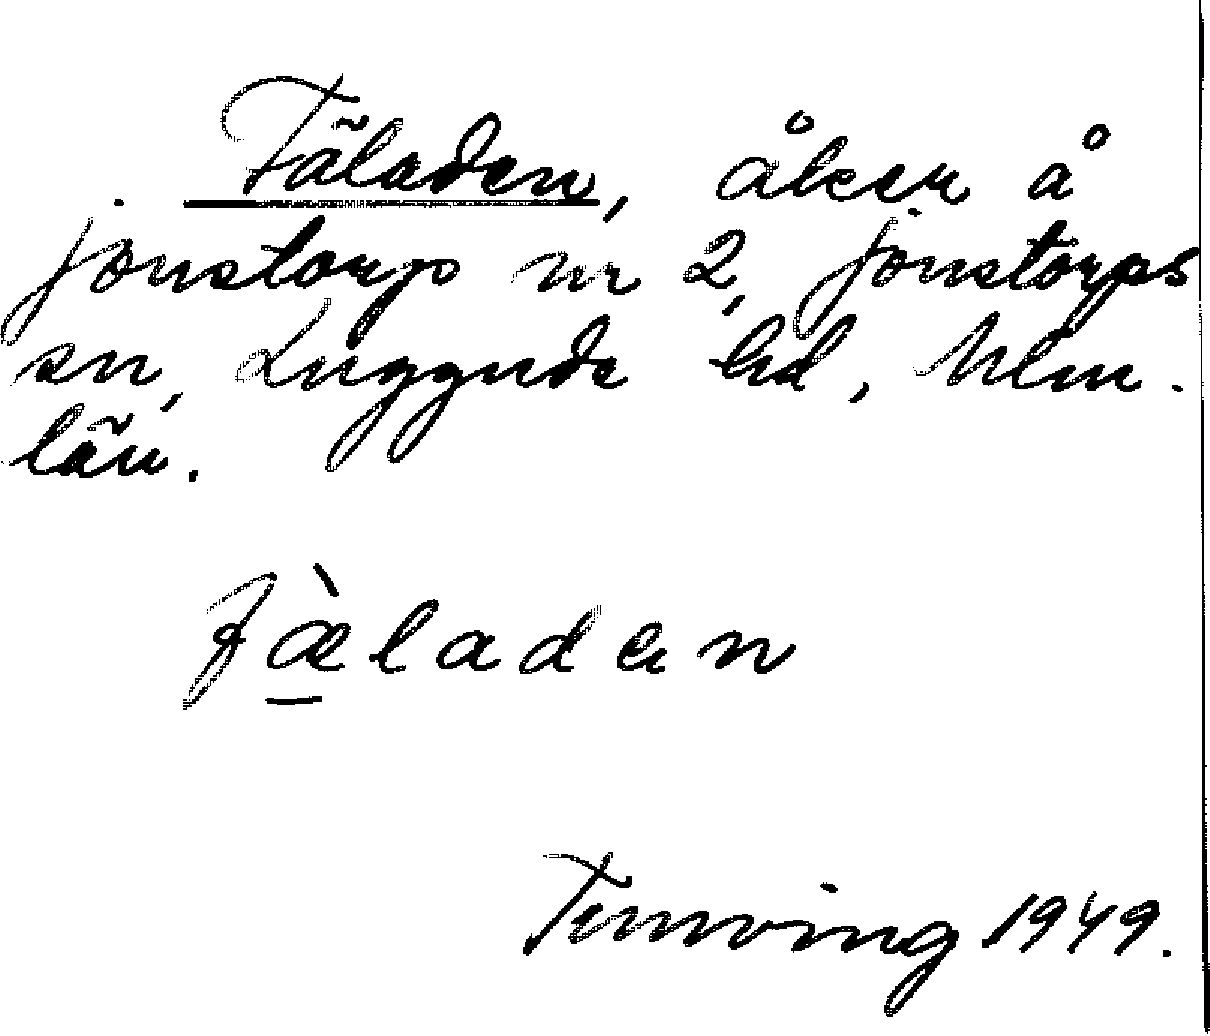 Fäladen, åker å
Jonstorp nr 2, Jonstorps
sn, Luggude hd, Mlm.
län.
fæ̀laden
Ternving 1949.